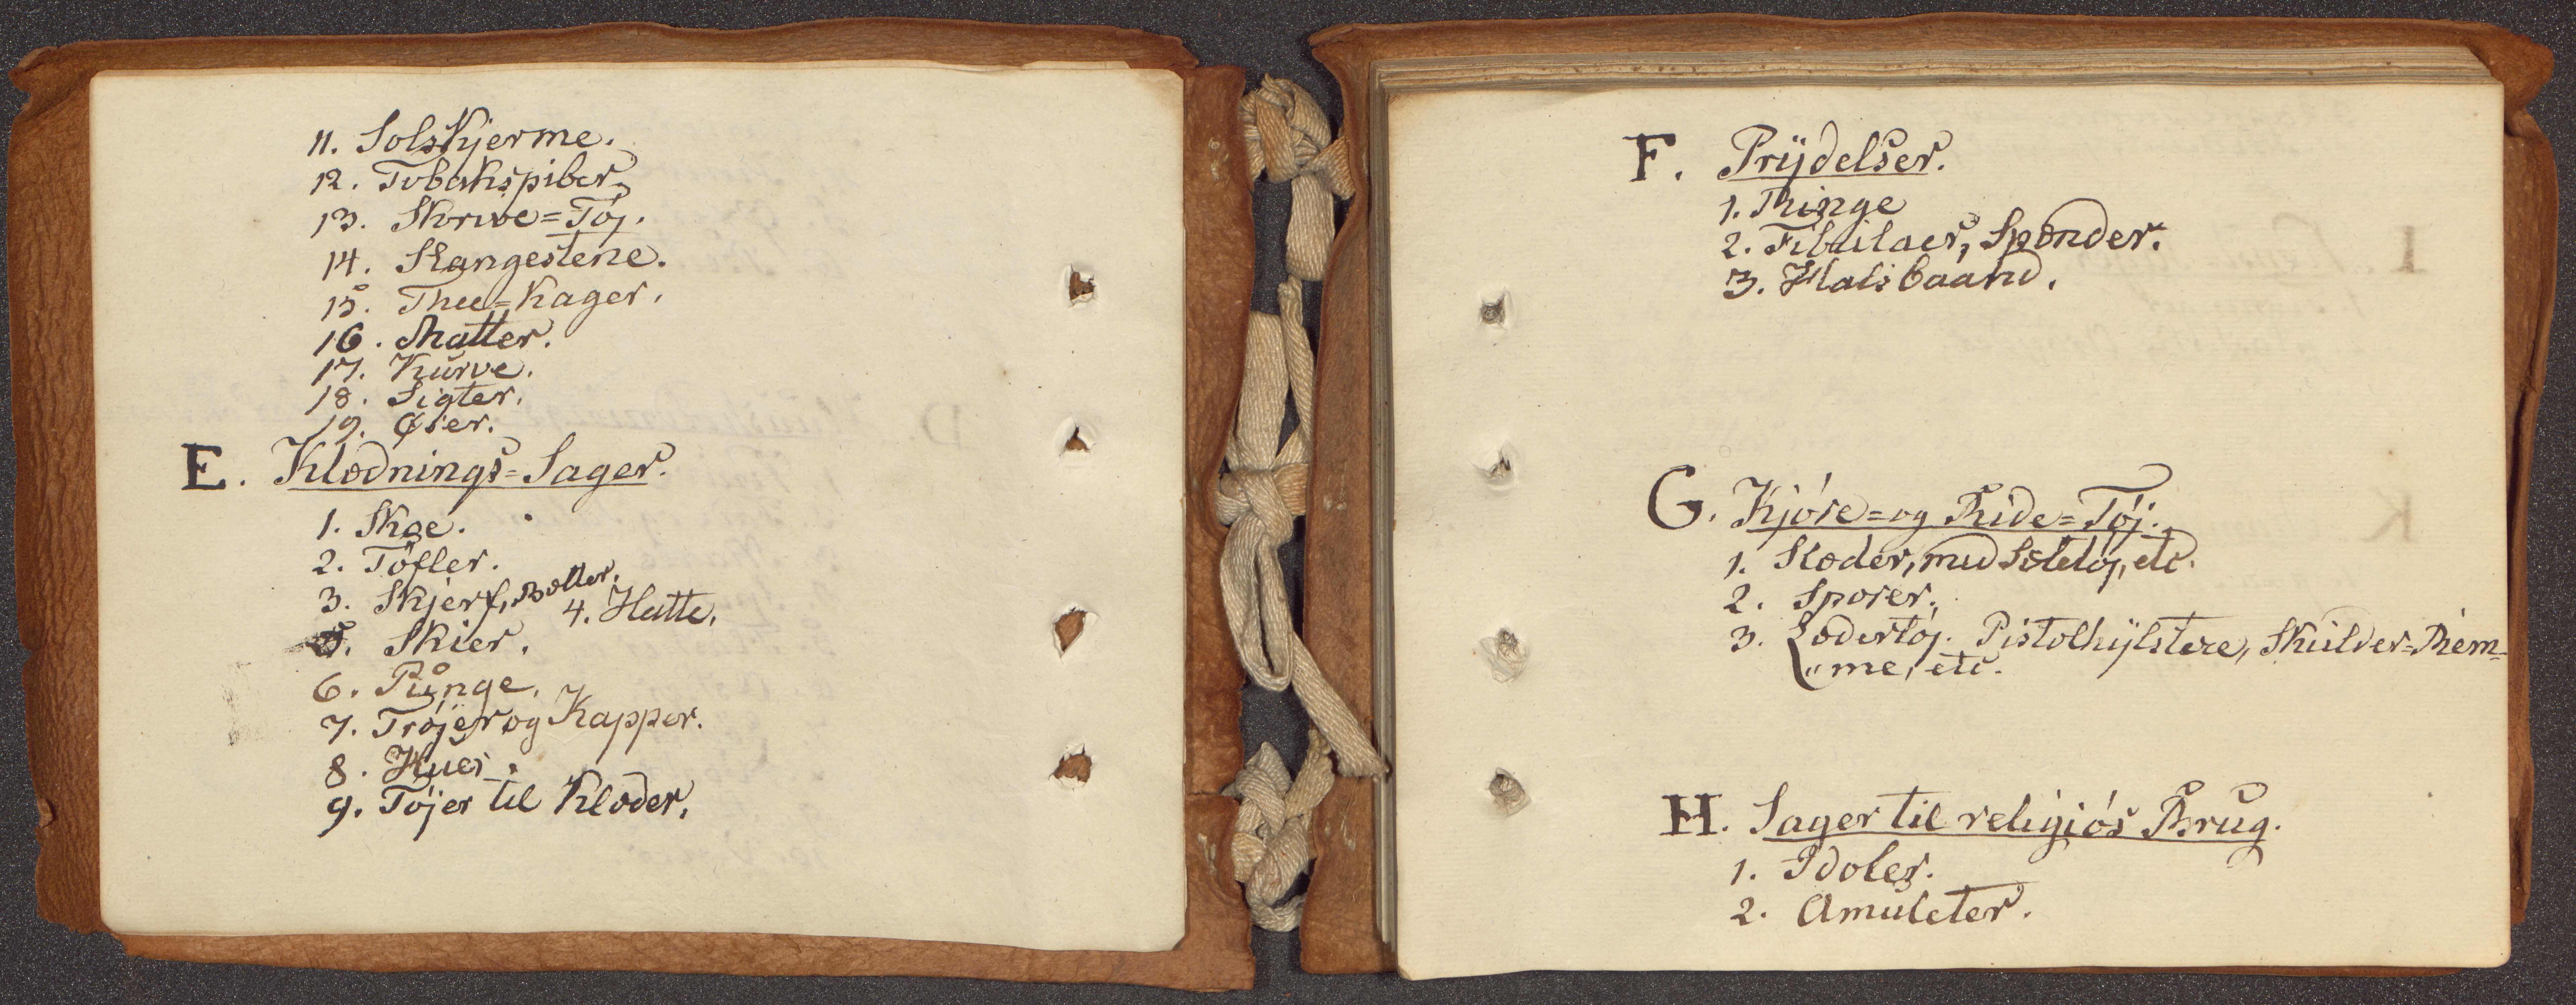 11. Solskjerme.
12. Tobakspiber.
13. Skrive=Tøj.
14. Stangestene.
15. Thee=Kager.
16. Matter.
17. Kurve.
18. Sigter.
19. Øser.
E. Klædnings=Sager.
1. Skoe.
2. Töfler.
3. Skjerf, Bælter.
4. Hatte.
5. Skier.
6. Punge.
7. Tröjer og Kapper.
8. Huer.
9. Töjer til Klæder.
F. Prÿdelser.
1. Ringe
2. Fibulaer, Spænder.
3. Halsbaand.
G. Kjóre=og Ride=Tój.
1. Slæder, med Seletøj, etc.
2. Sporer.
3. Lædertøj. Pistolhÿlstere, Skulder=Rem=
"me, etc.
H. Sager til religiós Brug.
1. Idoler.
2. Amuleter.